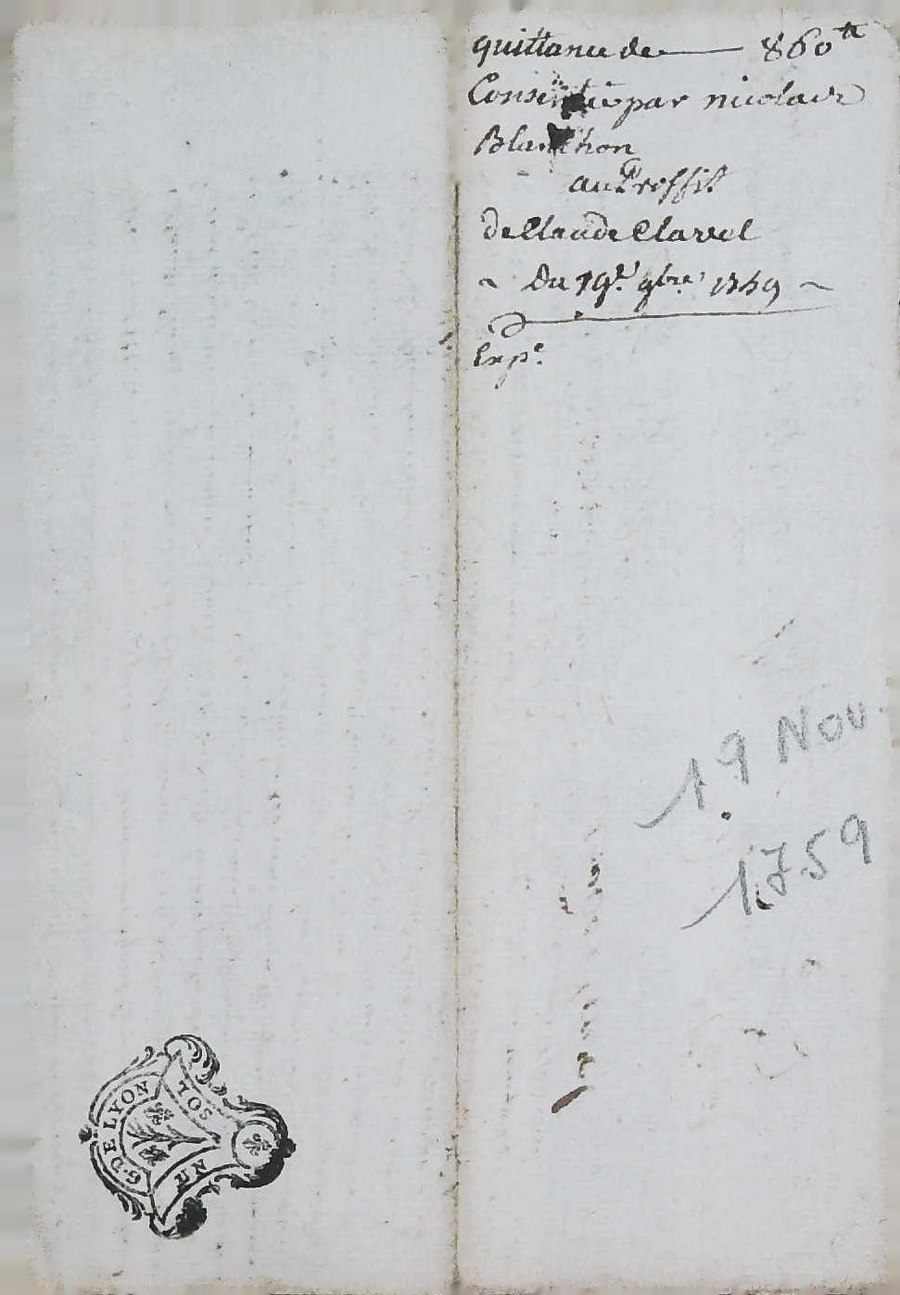 quittance de — 860ᵗᵗ
Consentie par nicolas
Blanchon
au Proffit
de Claude Clavel
~ Du 19ᵉ. 9bre. 1759 ~
Expᵉ.
19 Nov.
1759
G. DE LYON
UN SOL